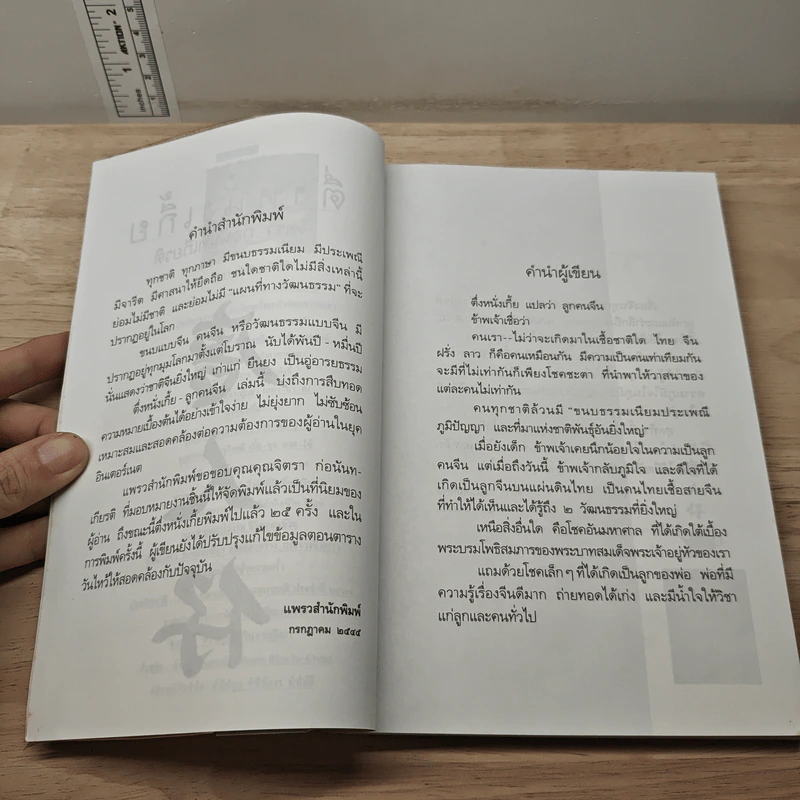 คำนำสำนักพิมพ์
ทุกชาติ ทุกภาษา มีขนบธรรมเนียม มีประเพณี
มีจารีต มีศาสนาให้ยึดถือ ชนใดชาติใดไม่มีสิ่งเหล่านี้
ย่อมไม่มีชาติ และย่อมไม่มี “แผนที่ทางวัฒนธรรม” ที่จะ
ปรากฏอยู่ในโลก
ขนบแบบจีน คนจีน หรือวัฒนธรรมแบบจีน มี
ปรากฏอยู่ทุกมุมโลกมาตั้งแต่โบราณ นับได้พันปี - หมื่นปี
นั่นแสดงว่าชาติจีนยิ่งใหญ่ เก่าแก่ ยืนยง เป็นอู่อารยธรรม
ตึ่งหนั่งเกี้ย - ลูกคนจีน เล่มนี้ บ่งถึงการสืบทอด
ความหมายเบื้องต้นได้อย่างเข้าใจง่าย ไม่ยุ่งยาก ไม่ซับซ้อน
เหมาะสมและสอดคล้องต่อความต้องการของผู้อ่านในยุค
อินเตอร์เนต
แพรวสำนักพิมพ์ขอขอบคุณคุณจิตรา ก่อนันท-
เกียรติ ที่มอบหมายงานชิ้นนี้ให้จัดพิมพ์แล้วเป็นที่นิยมของ
ผู้อ่าน ถึงขณะนี้ตึ่งหนั่งเกี้ยพิมพ์ไปแล้ว ๒๕ ครั้ง และใน
การพิมพ์ครั้งนี้ ผู้เขียนยังได้ปรับปรุงแก้ไขข้อมูลตอนตาราง
วันไหว้ให้สอดคล้องกับปัจจุบัน
แพรวสำนักพิมพ์
กรกฎาคม ๒๕๔๕
คำนำผู้เขียน
ตึ่งหนั่งเกี้ย แปลว่า ลูกคนจีน
ข้าพเจ้าเชื่อว่า
คนเรา--ไม่ว่าจะเกิดมาในเชื้อชาติใด ไทย จีน
ฝรั่ง ลาว ก็คือคนเหมือนกัน มีความเป็นคนเท่าเทียมกัน
จะมีที่ไม่เท่ากันก็เพียงโชคชะตา ที่นำพาให้วาสนาของ
แต่ละคนไม่เท่ากัน
คนทุกชาติล้วนมี “ขนบธรรมเนียมประเพณี
ภูมิปัญญา และที่มาแห่งชาติพันธุ์อันยิ่งใหญ่”
เมื่อยังเด็ก ข้าพเจ้าเคยนึกน้อยใจในความเป็นลูก
คนจีน แต่เมื่อถึงวันนี้ ข้าพเจ้ากลับภูมิใจ และดีใจที่ได้
เกิดเป็นลูกจีนบนแผ่นดินไทย เป็นคนไทยเชื้อสายจีน
ที่ทำให้ได้เห็นและได้รู้ถึง ๒ วัฒนธรรมที่ยิ่งใหญ่
เหนือสิ่งอื่นใด คือโชคอันมหาศาล ที่ได้เกิดใต้เบื้อง
พระบรมโพธิสมภารของพระบาทสมเด็จพระเจ้าอยู่หัวของเรา
แถมด้วยโชคเล็กๆ ที่ได้เกิดเป็นลูกของพ่อ พ่อที่มี
ความรู้เรื่องจีนดีมาก ถ่ายทอดได้เก่ง และมีน้ำใจให้วิชา
แก่ลูกและคนทั่วไป